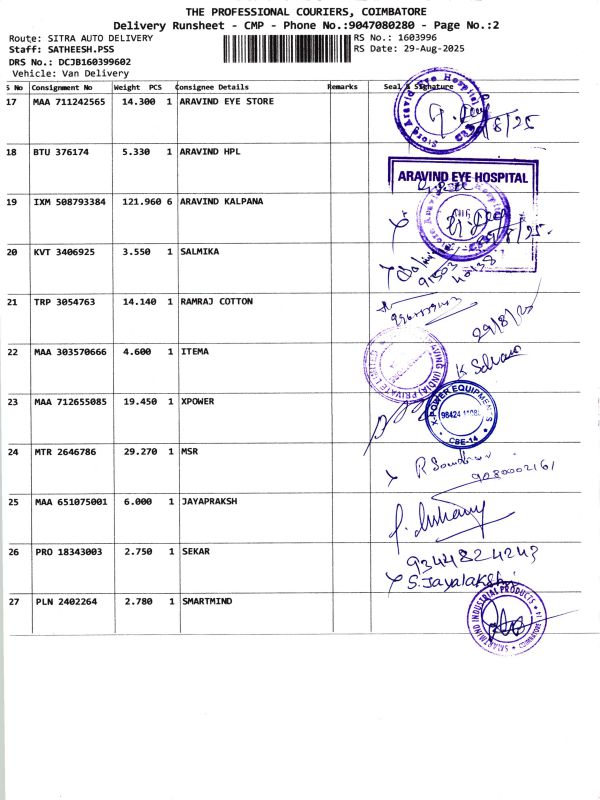 THE PROFESSIONAL COURIERS, COIMBATORE
Delivery Runsheet - CMP - Phone No.:9047080280 - Page No.:2
Route: SITRA AUTO DELIVERY RS No.: 1603996
Staff: SATHEESH.PSS RS Date: 29-Aug-2025
DRS No.: DCJB160399602
Vehicle: Van Delivery
S No Consignment No Weight PCS Consignee Details Remarks Seal & Signature
17 MAA 711242565 14.300 1 ARAVIND EYE STORE
Aravind Eye Hospital
Store
18 BTU 376174 5.330 1 ARAVIND HPL
ARAVIND EYE HOSPITAL
19 IXM 508793384 121.960 6 ARAVIND KALPANA
20 KVT 3406925 3.550 1 SALMIKA
21 TRP 3054763 14.140 1 RAMRAJ COTTON
29/8/25
22 MAA 303570666 4.600 1 ITEMA
(INDIA) PRIVATE LIMITED
23 MAA 712655085 19.450 1 XPOWER
X-POWER EQUIPMENTS
CBE-14
24 MTR 2646786 29.270 1 MSR
9080002161
25 MAA 651075001 6.000 1 JAYAPRAKSH
26 PRO 18343003 2.750 1 SEKAR
9344824243
S. Jayalakshmi
27 PLN 2402264 2.780 1 SMARTMIND
SMARTMIND INDUSTRIAL PRODUCTS
COIMBATORE